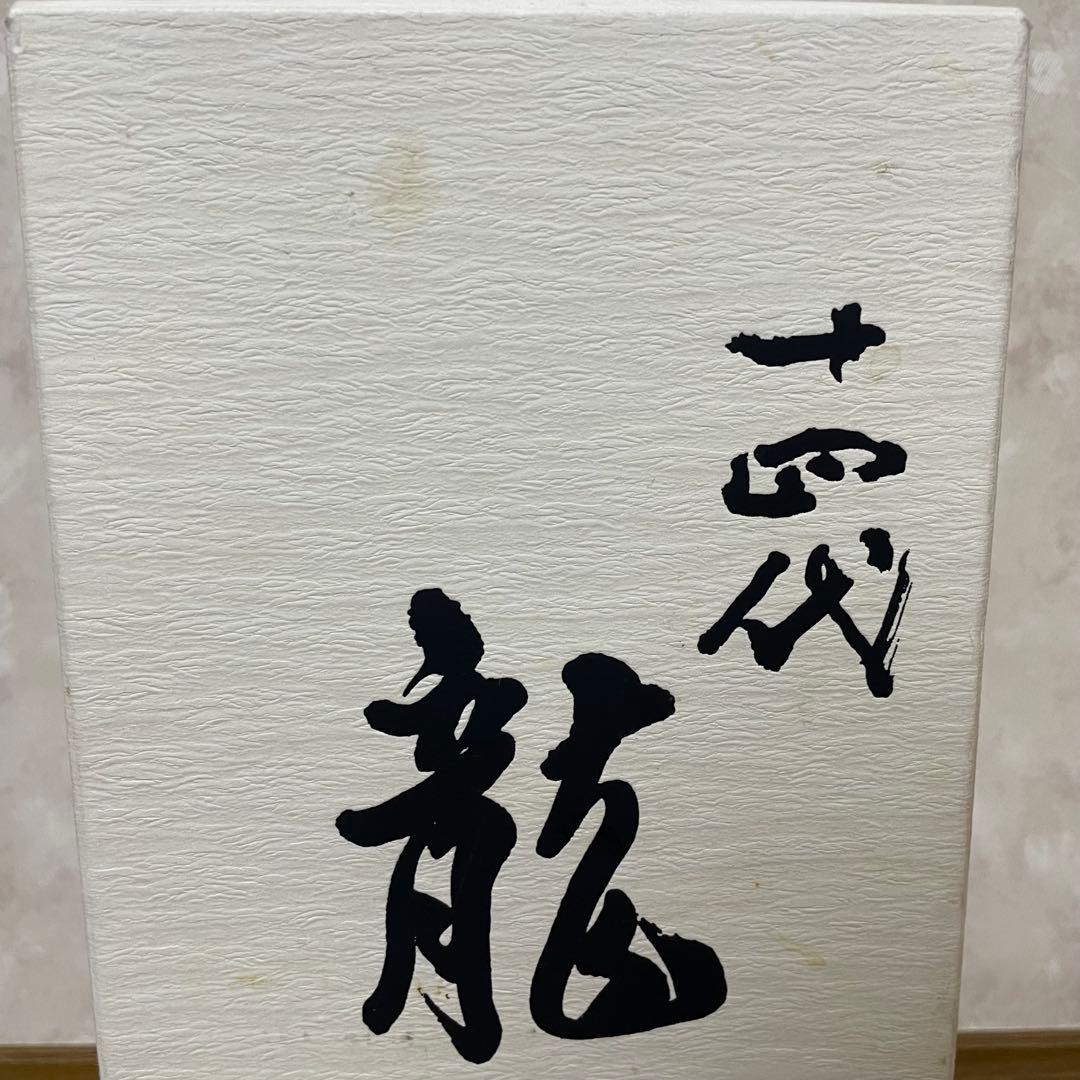 十四代
龍